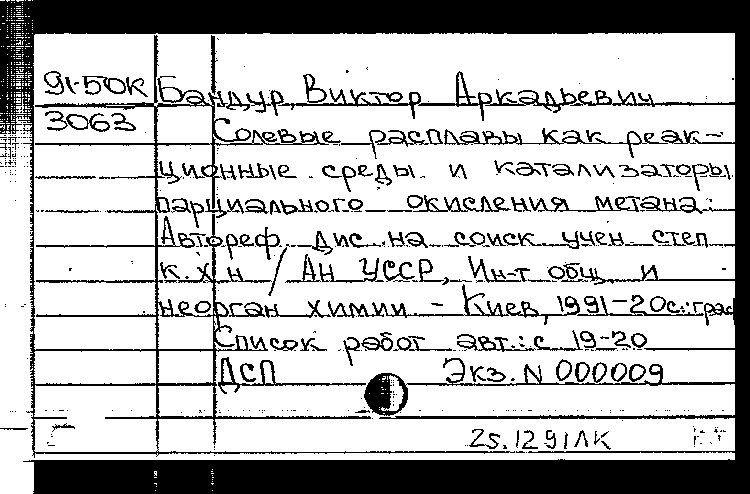 91-50К Бандур, Виктор Аркадьевич
3063 Солевые расплавы как реак-
ционные среды и катализаторы
парциального окисления метана:
Автореф. дис. на соиск. учен. степ
к. х н / Ан УССР, Ин-т общ. и
неорган химии. - Киев, 1991-20с.:граф
Список работ авт.: с 19-20
ДСП Экз. N 000009
25.12 91ЛК